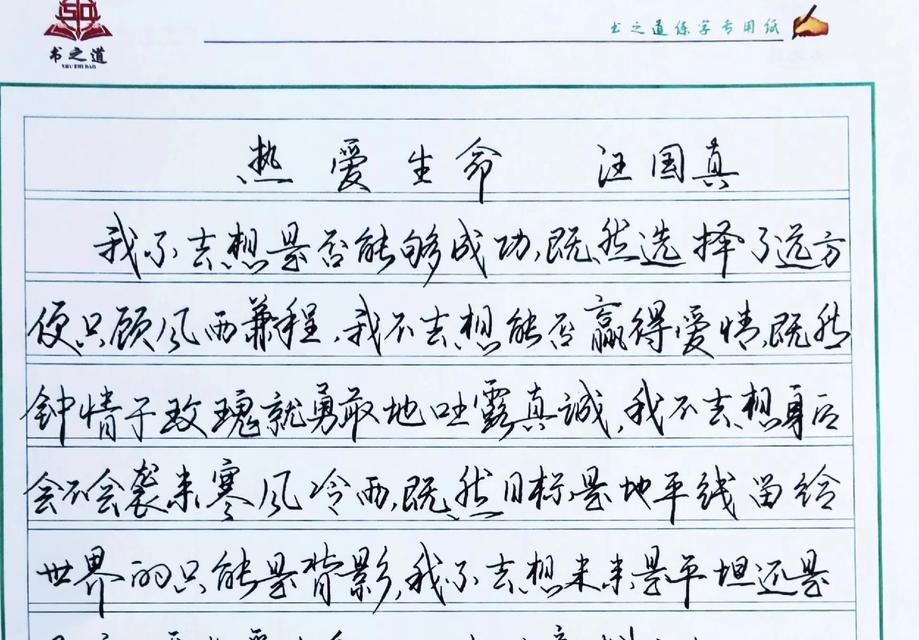 书之道
SHU ZHI DAO
书之道练字专用纸
热爱生命 汪国真
我不去想是否能够成功,既然选择了远方
便只顾风雨兼程,我不去想能否赢得爱情,既然
钟情于玫瑰就勇敢地吐露真诚,我不去想身后
会不会袭来寒风冷雨,既然目标是地平线留给
世界的只能是背影,我不去想未来是平坦还是